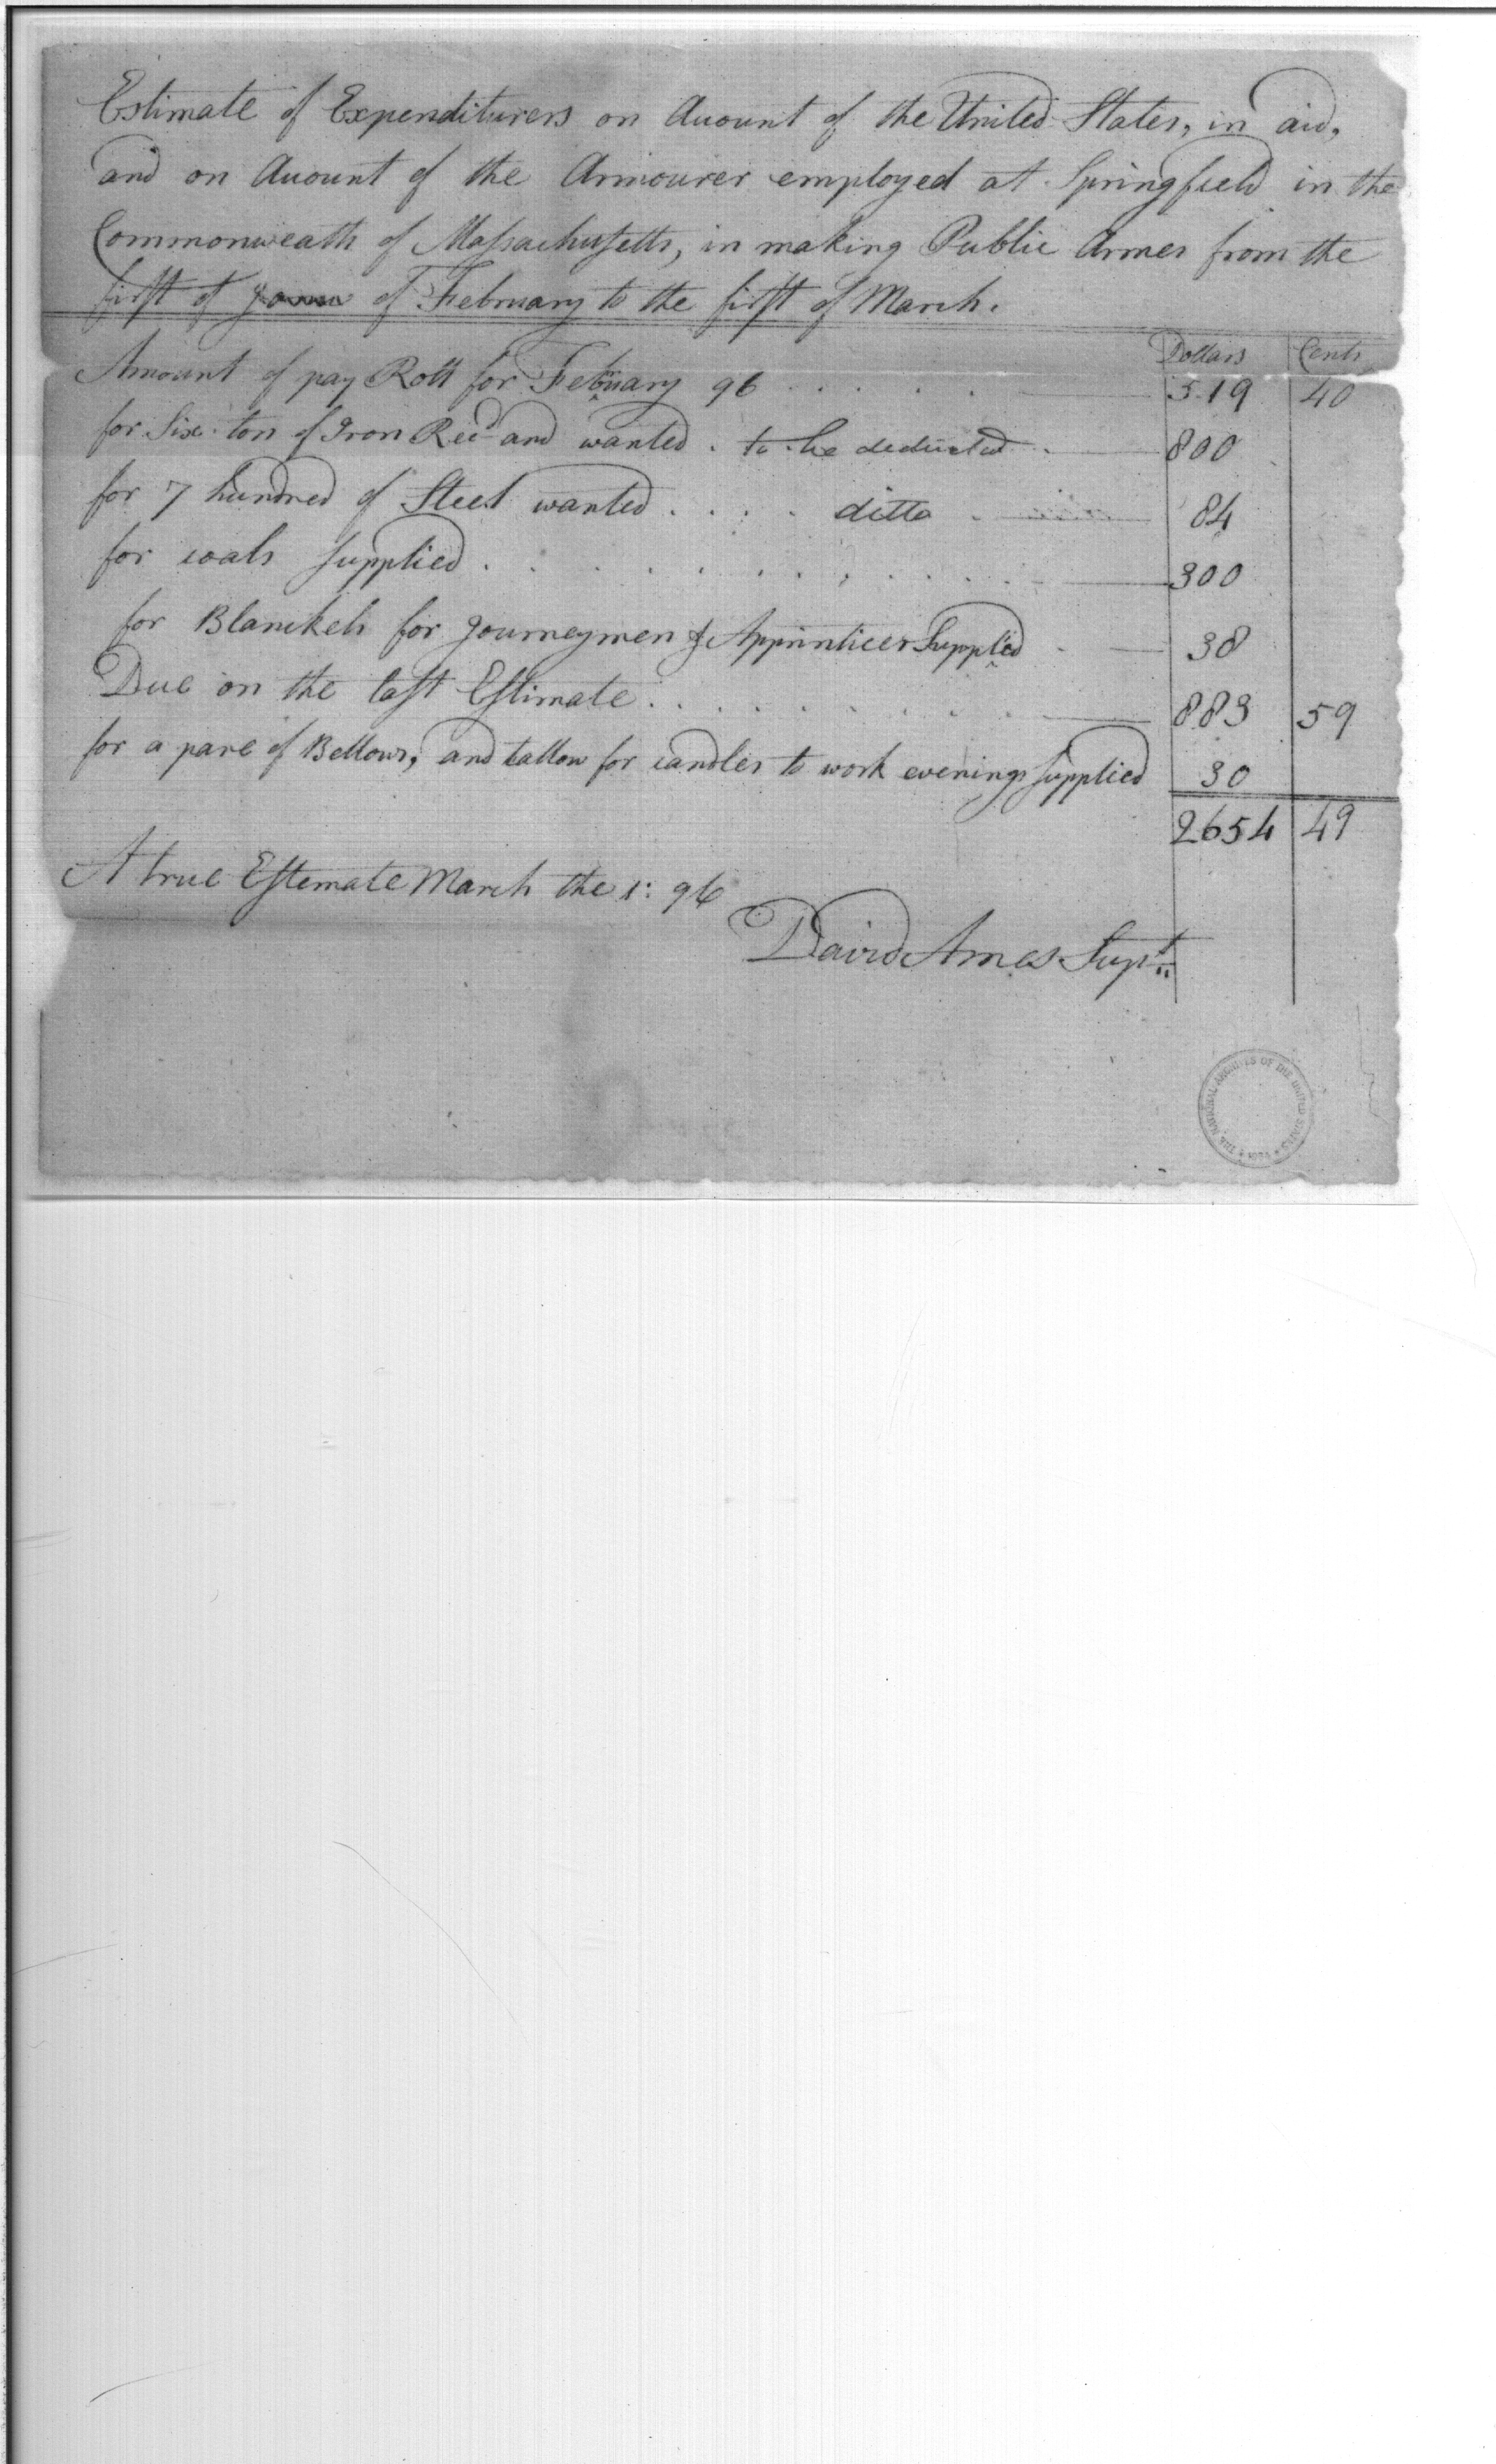 Estimate of Expenditurers on Account of the United States, in aid,
and on Account of the Armourer employed at Springfield in the
Commonweath of Massachusetts, in making Public Armes from the
first of Janu of February to the first of March.
Dollars Cents
Amount of pay Roll for February 96 . . . . . 519 40
for Six ton of Iron Recd and wanted . to be deducted . 800
for 7 hundred of Steel wanted . . . . ditto . 84
for coals supplied . . . . . . . . . . . 300
for Blanckets for Journeymen & Apprintices Supplied . 38
Due on the last Estimate . . . . . . . . 883 59
for a pare of Bellows, and tallow for candles to work evenings supplied 30
2654 49
A true Estemate March the 1: 96
David Ames Supt
THE NATIONAL ARCHIVES OF THE UNITED STATES